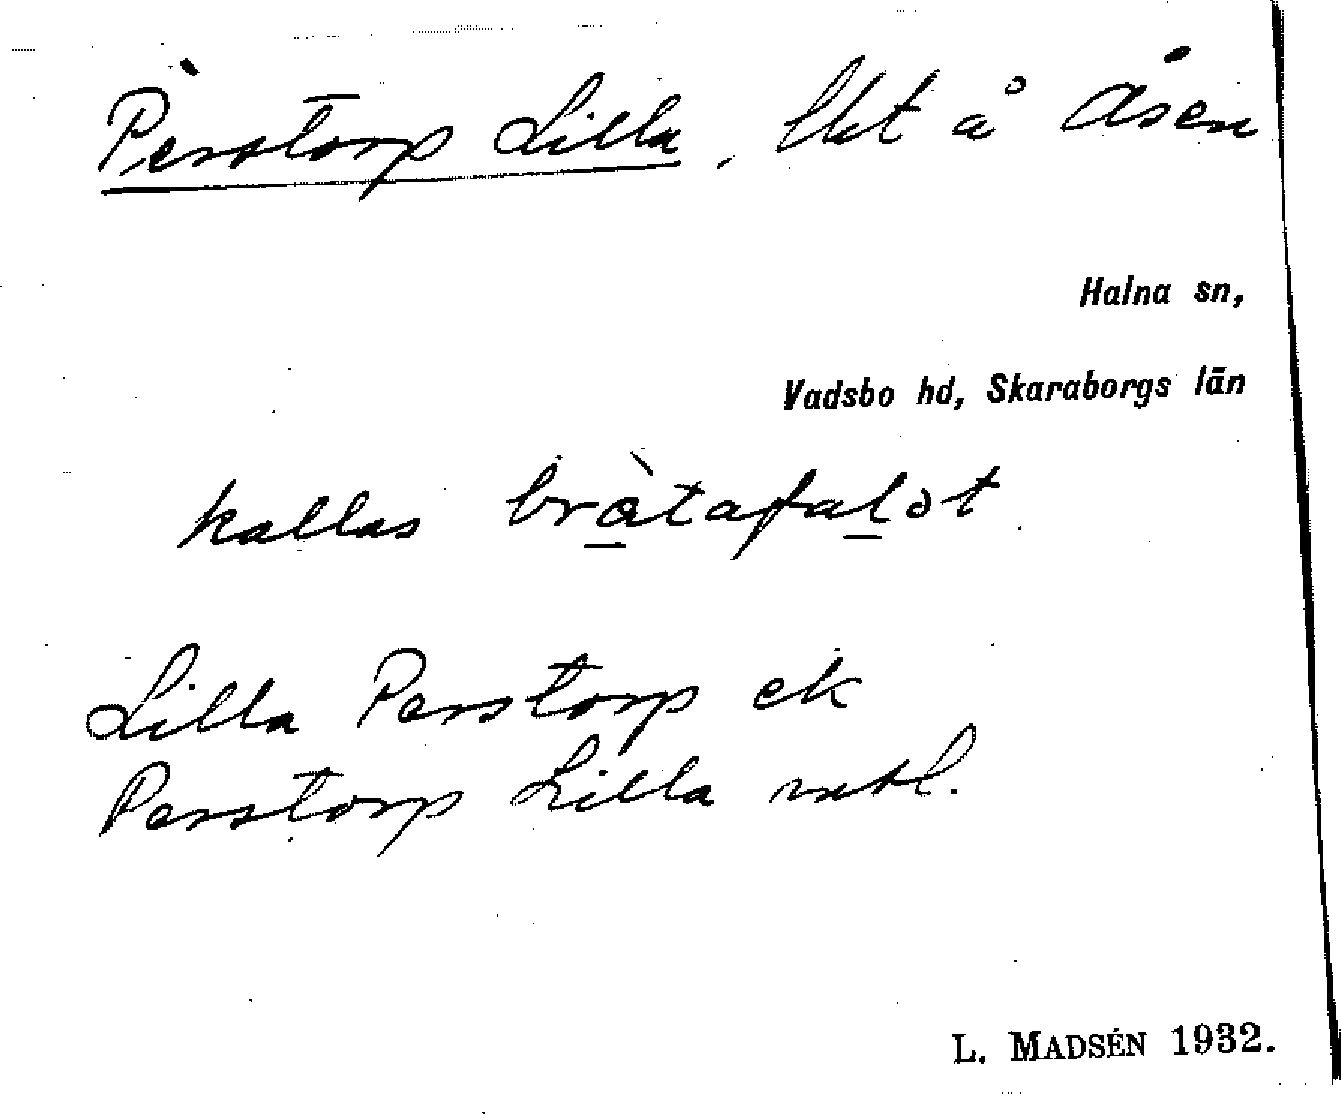 Pèrstorp Lilla, lht å Åsen
Halna sn,
Vadsbo hd, Skaraborgs län
kallas bràtafalet
Lilla Perstorp ek
Perstorp Lilla mtl.
L. MADSÉN 1932.